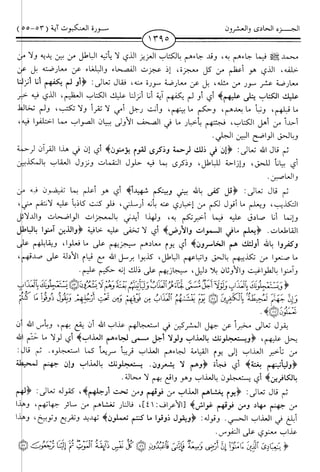 الجـزء الحادى والعشرون
سورة العنكبوت آية (٥٣-٥٥)
١٣٩٥
محمد ﷺ فيما جاءهم به، وقد جاءهم بالكتاب العزيز الذي لا يأتيه الباطل من بين يديه ولا من
خلفه، الذي هو أعظم من كل معجزة، إذ عجزت الفصحاء والبلغاء عن معارضته بل عن
معارضة عشر سور من مثله، بل عن معارضة سورة منه، فقال تعالى: ﴿أو لم يكفهم أنا أنزلنا
عليك الكتاب يتلى عليهم﴾ أي أو لم يكفهم آية أنا أنزلنا عليك الكتاب العظيم، الذي فيه خبر
ما قبلهم، ونبأ ما بعدهم، وحكم ما بينهم، وأنت رجل أمي لا تقرأ ولا تكتب، ولم تخالط
أحداً من أهل الكتاب، فجئتهم بأخبار ما في الصحف الأولى ببيان الصواب مما اختلفوا فيه،
وبالحق الواضح البين الجلي.
ثم قال الله تعالى: ﴿إن في ذلك لرحمة وذكرى لقوم يؤمنون﴾ أي إن في هذا القرآن لرحمة
أي بياناً للحق، وإزاحة للباطل، وذكرى بما فيه حلول النقمات ونزول العقاب بالمكذبين
والعاصين.
ثم قال تعالى: ﴿قل كفى بالله بيني وبينكم شهيداً﴾ أي هو أعلم بما تفيضون فيه من
التكذيب، ويعلم ما أقول لكم من إخباري عنه بأنه أرسلني، فلو كنت كاذباً عليه لانتقم مني،
وإنما أنا صادق عليه فيما أخبرتكم به، ولهذا أيدني بالمعجزات الواضحات والدلائل
القاطعات. ﴿يعلم مافي السموات والأرض﴾ أي لا تخفى عليه خافية ﴿والذين آمنوا بالباطل
وكفروا بالله أولئك هم الخاسرون﴾ أي يوم معادهم سيجزيهم على ما فعلوا، ويقابلهم على
ما صنعوا من تكذيبهم بالحق واتباعهم الباطل، كذبوا برسل الله مع قيام الأدلة على صدقهم،
وآمنوا بالطواغيت والأوثان بلا دليل، سيجازيهم على ذلك إنه حكيم عليم.
﴿وَيَسْتَعْجِلُونَكَ بِالْعَذَابِ وَلَوْلَا أَجَلٌ مُّسَمًّى لَّجَاءَهُمُ الْعَذَابُ وَلَيَأْتِيَنَّهُم بَغْتَةً وَهُمْ لَا يَشْعُرُونَ ۝ يَسْتَعْجِلُونَكَ بِالْعَذَابِ
وَإِنَّ جَهَنَّمَ لَمُحِيطَةٌ بِالْكَافِرِينَ ۝ يَوْمَ يَغْشَاهُمُ الْعَذَابُ مِن فَوْقِهِمْ وَمِن تَحْتِ أَرْجُلِهِمْ وَيَقُولُ ذُوقُوا مَا كُنتُمْ
تَعْمَلُونَ ۝﴾
يقول تعالى مخبراً عن جهل المشركين في استعجالهم عذاب الله أن يقع بهم، وبأس الله أن
يحل عليهم، ﴿ويستعجلونك بالعذاب ولولا أجل مسمى لجاءهم العذاب﴾ أي لولا ما حتم الله
من تأخير العذاب إلى يوم القيامة لجاءهم العذاب قريباً سريعاً كما استعجلوه. ثم قال:
﴿وليأتينهم بغتة﴾ أي فجأة ﴿وهم لا يشعرون. يستعجلونك بالعذاب وإن جهنم لمحيطة
بالكافرين﴾ أي يستعجلون بالعذاب وهو واقع بهم لا محالة.
ثم قال تعالى: ﴿يوم يغشاهم العذاب من فوقهم ومن تحت أرجلهم﴾، كقوله تعالى: ﴿لهم
من جهنم مهاد ومن فوقهم غواش﴾ [الأعراف: ٤١]، فالنار تغشاهم من سائر جهاتهم، وهذا
أبلغ في العذاب الحسي. وقوله: ﴿ويقول ذوقوا ما كنتم تعملون﴾ تهديد وتقريع وتوبيخ، وهذا
عذاب معنوي على النفوس.
﴿يَا عِبَادِيَ الَّذِينَ آمَنُوا إِنَّ أَرْضِي وَاسِعَةٌ فَإِيَّايَ فَاعْبُدُونِ ۝ كُلُّ نَفْسٍ ذَائِقَةُ الْمَوْتِ ثُمَّ إِلَيْنَا تُرْجَعُونَ ۝